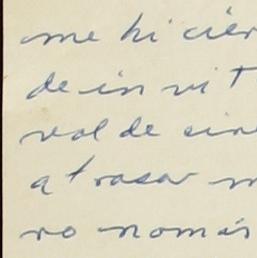 me hicier
de invit
val de cine
atrasar m
ro nomás